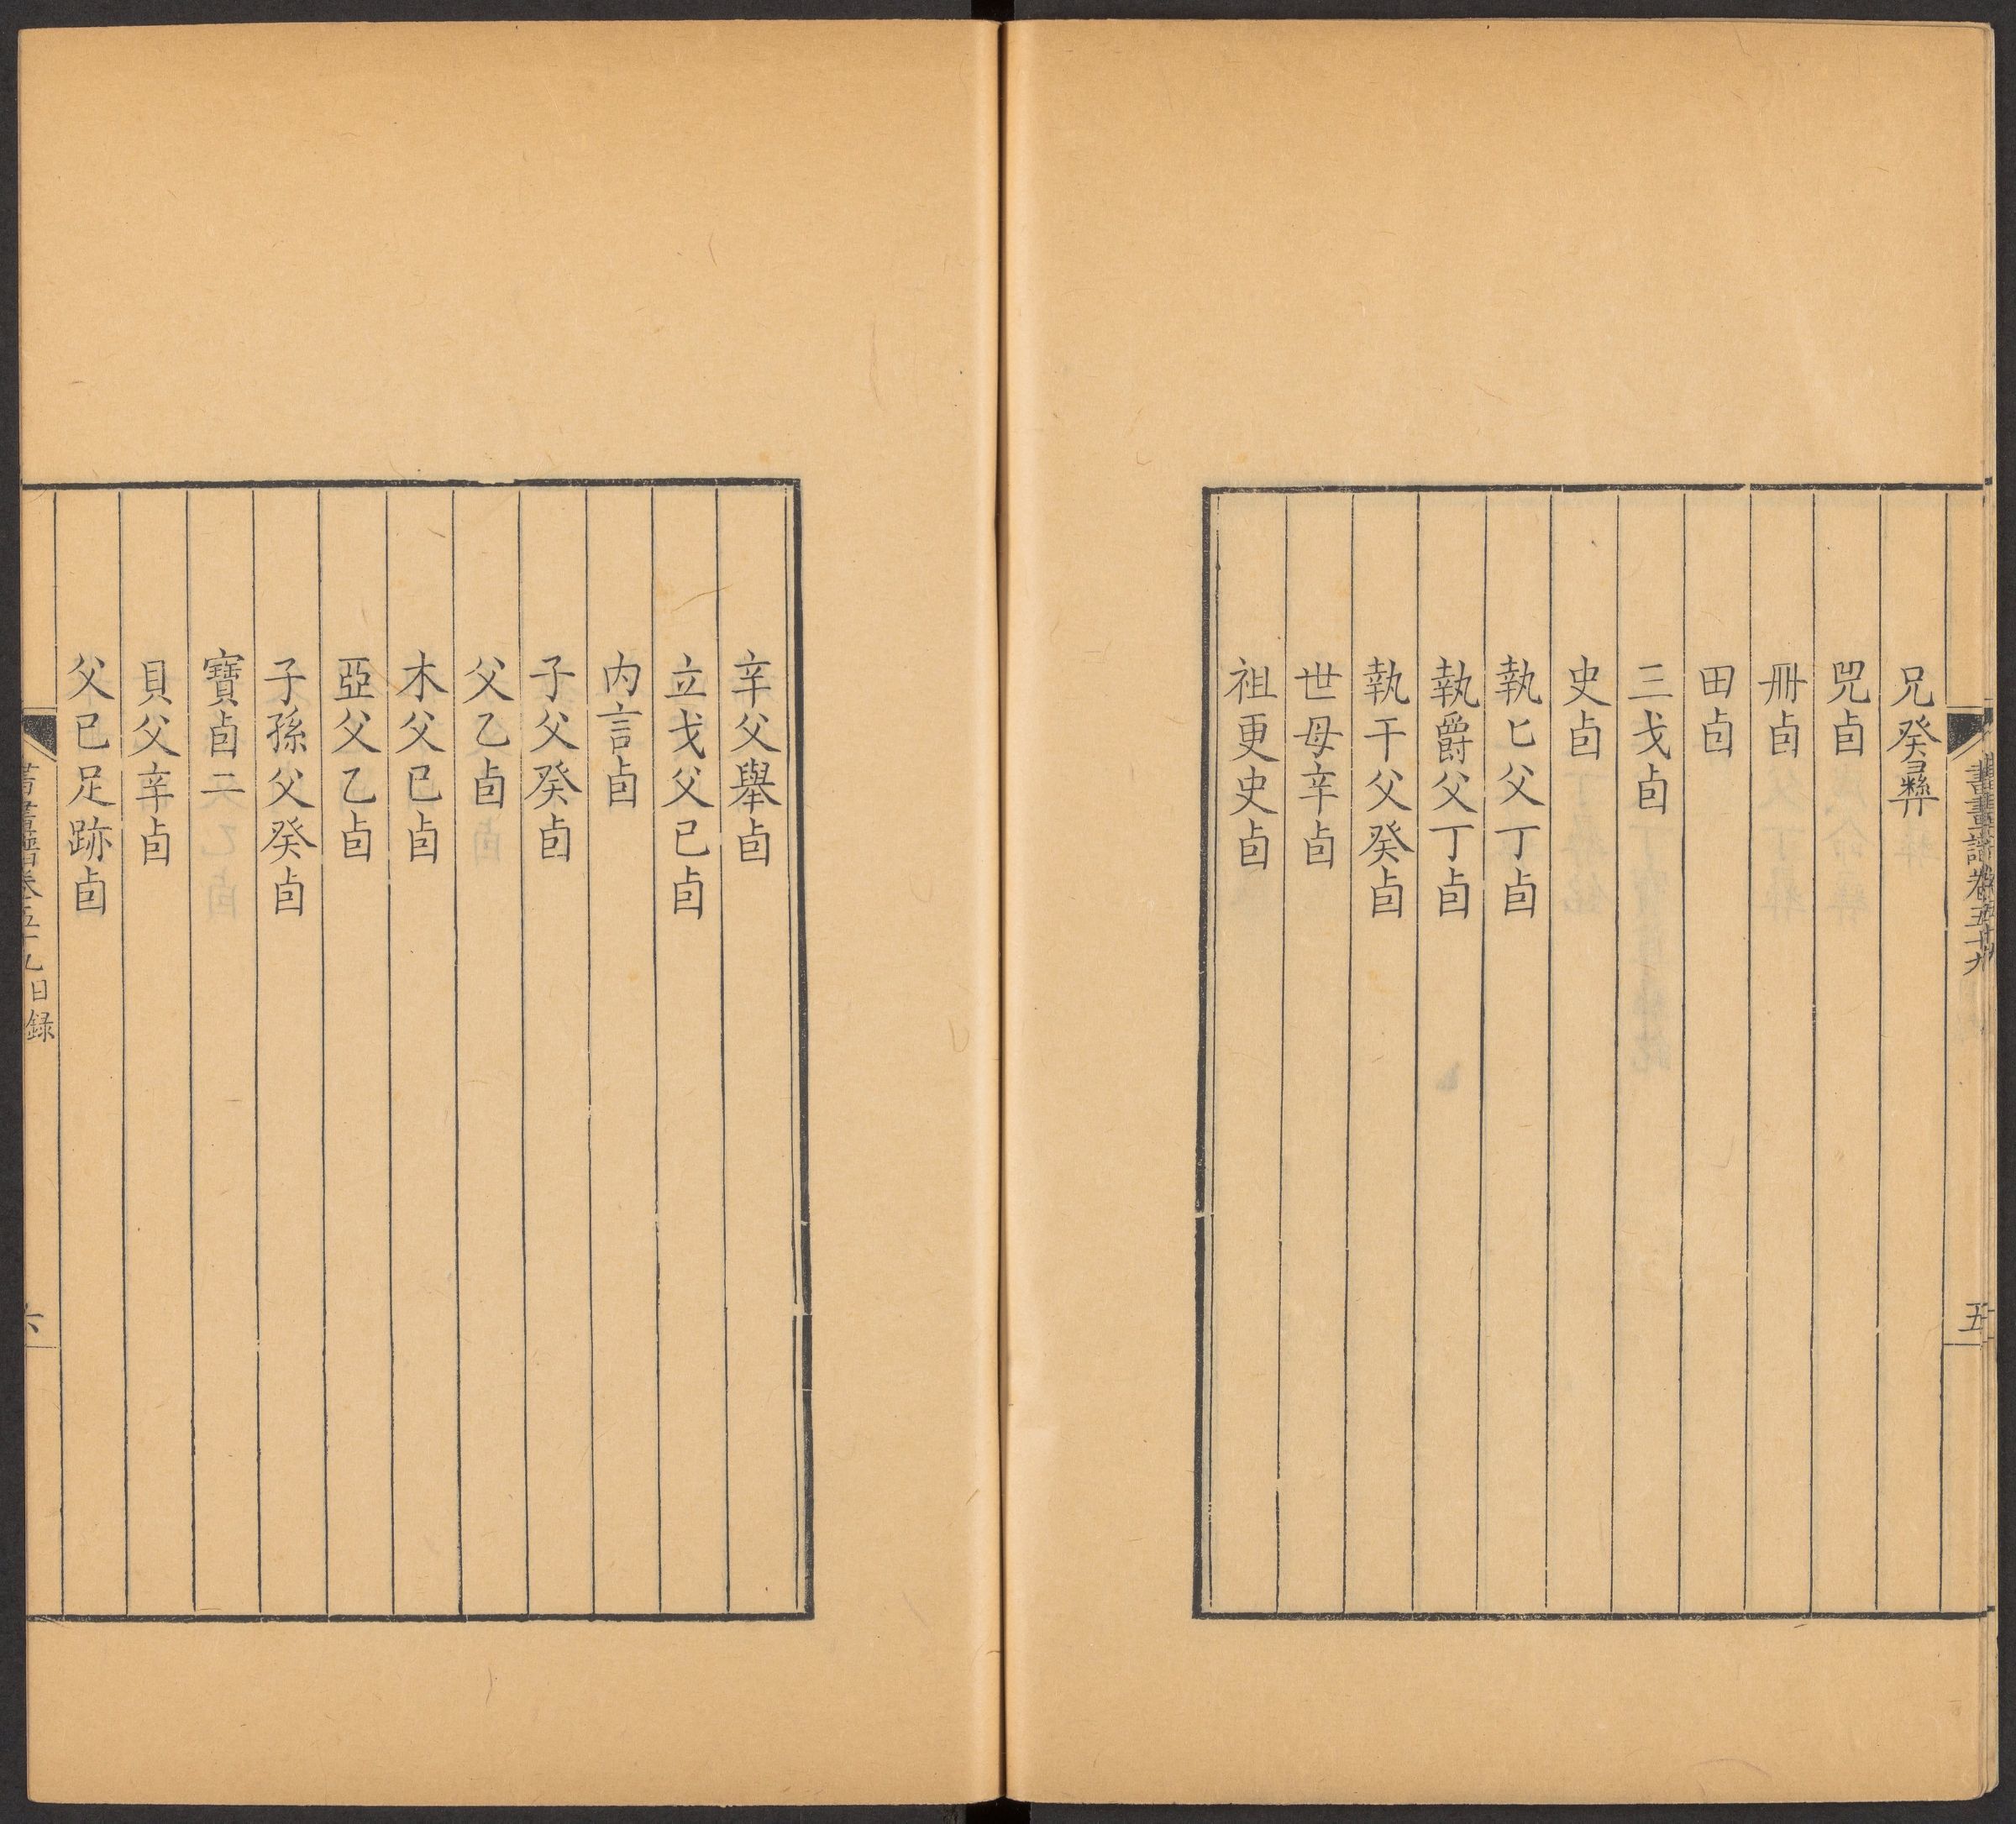 書畫譜卷五十九
五
兄癸彝
兕卣
冊卣
田卣
三戈卣
史卣
執匕父丁卣
執爵父丁卣
執干父癸卣
世母辛卣
祖更史卣
辛父舉卣
立戈父已卣
内言卣
子父癸卣
父乙卣
木父已卣
亞父乙卣
子孫父癸卣
寶卣二
貝父辛卣
父已足跡卣
書畫譜卷五十九目録
六